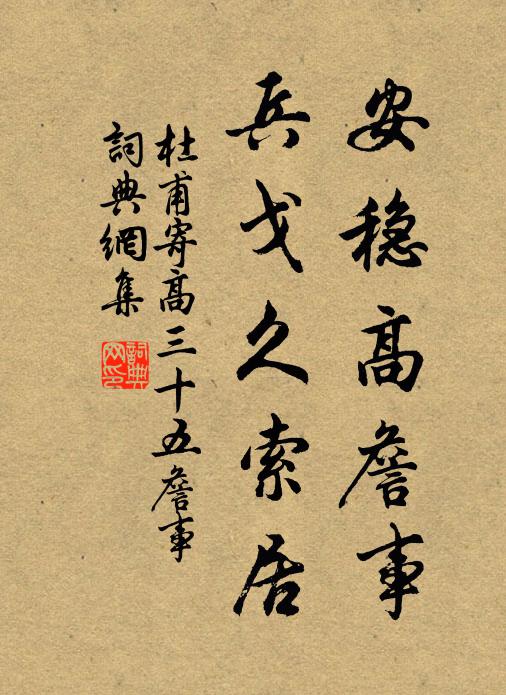 安稳高詹事
兵戈久索居
杜甫寄高三十五詹事
詞典網集
詞典
网印